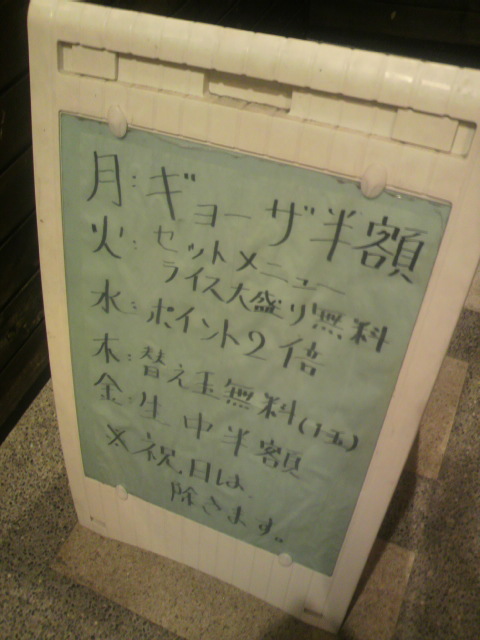 月:ギョーザ半額
火:セットメニュー
ライス大盛り無料
水:ポイント2倍
木:替え玉無料(1玉)
金:生中半額
※祝日は
除きます。